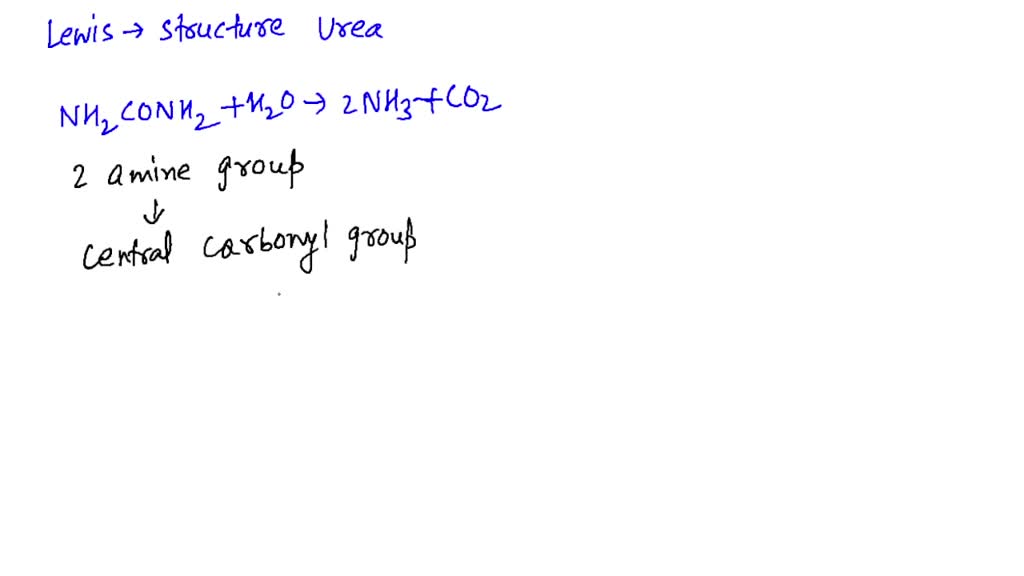 Lewis → structure Urea
NH₂CONH₂ + H₂O → 2NH₃ + CO₂
2 amine group
↓
Central carbonyl group